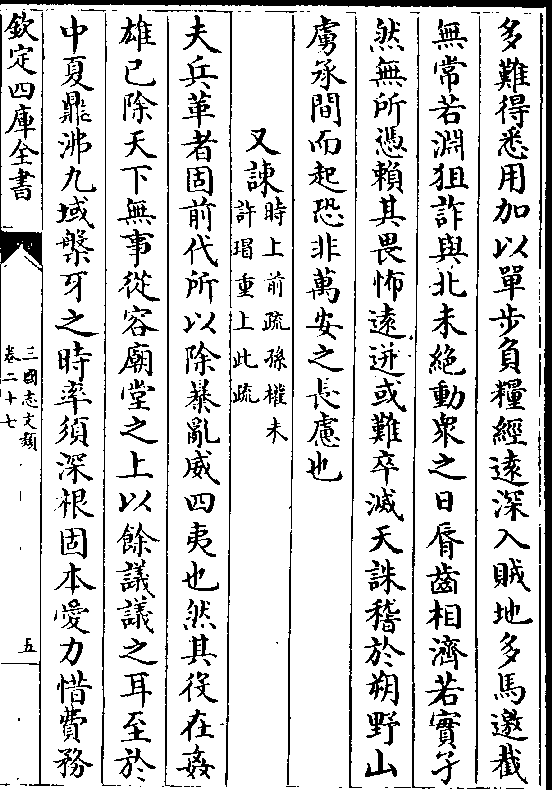 多難得悉用加以單步負糧經遠深入賊地多馬邀截
無常若淵狙詐與北未絶動衆之日脣齒相濟若實孑
然無所憑賴其畏怖遠迸或難卒滅天誅稽於朔野山
虜承間而起恐非萬安之長慮也
又諫時上前疏孫權未
許瑁重上此疏
夫兵革者固前代所以除暴亂威四夷也然其役在姦
雄已除天下無事從容廟堂之上以餘議議之耳至於
中夏鼎沸九域槃牙之時率須深根固本愛力惜費務
欽定四庫全書
三國志文類
卷二十七
五